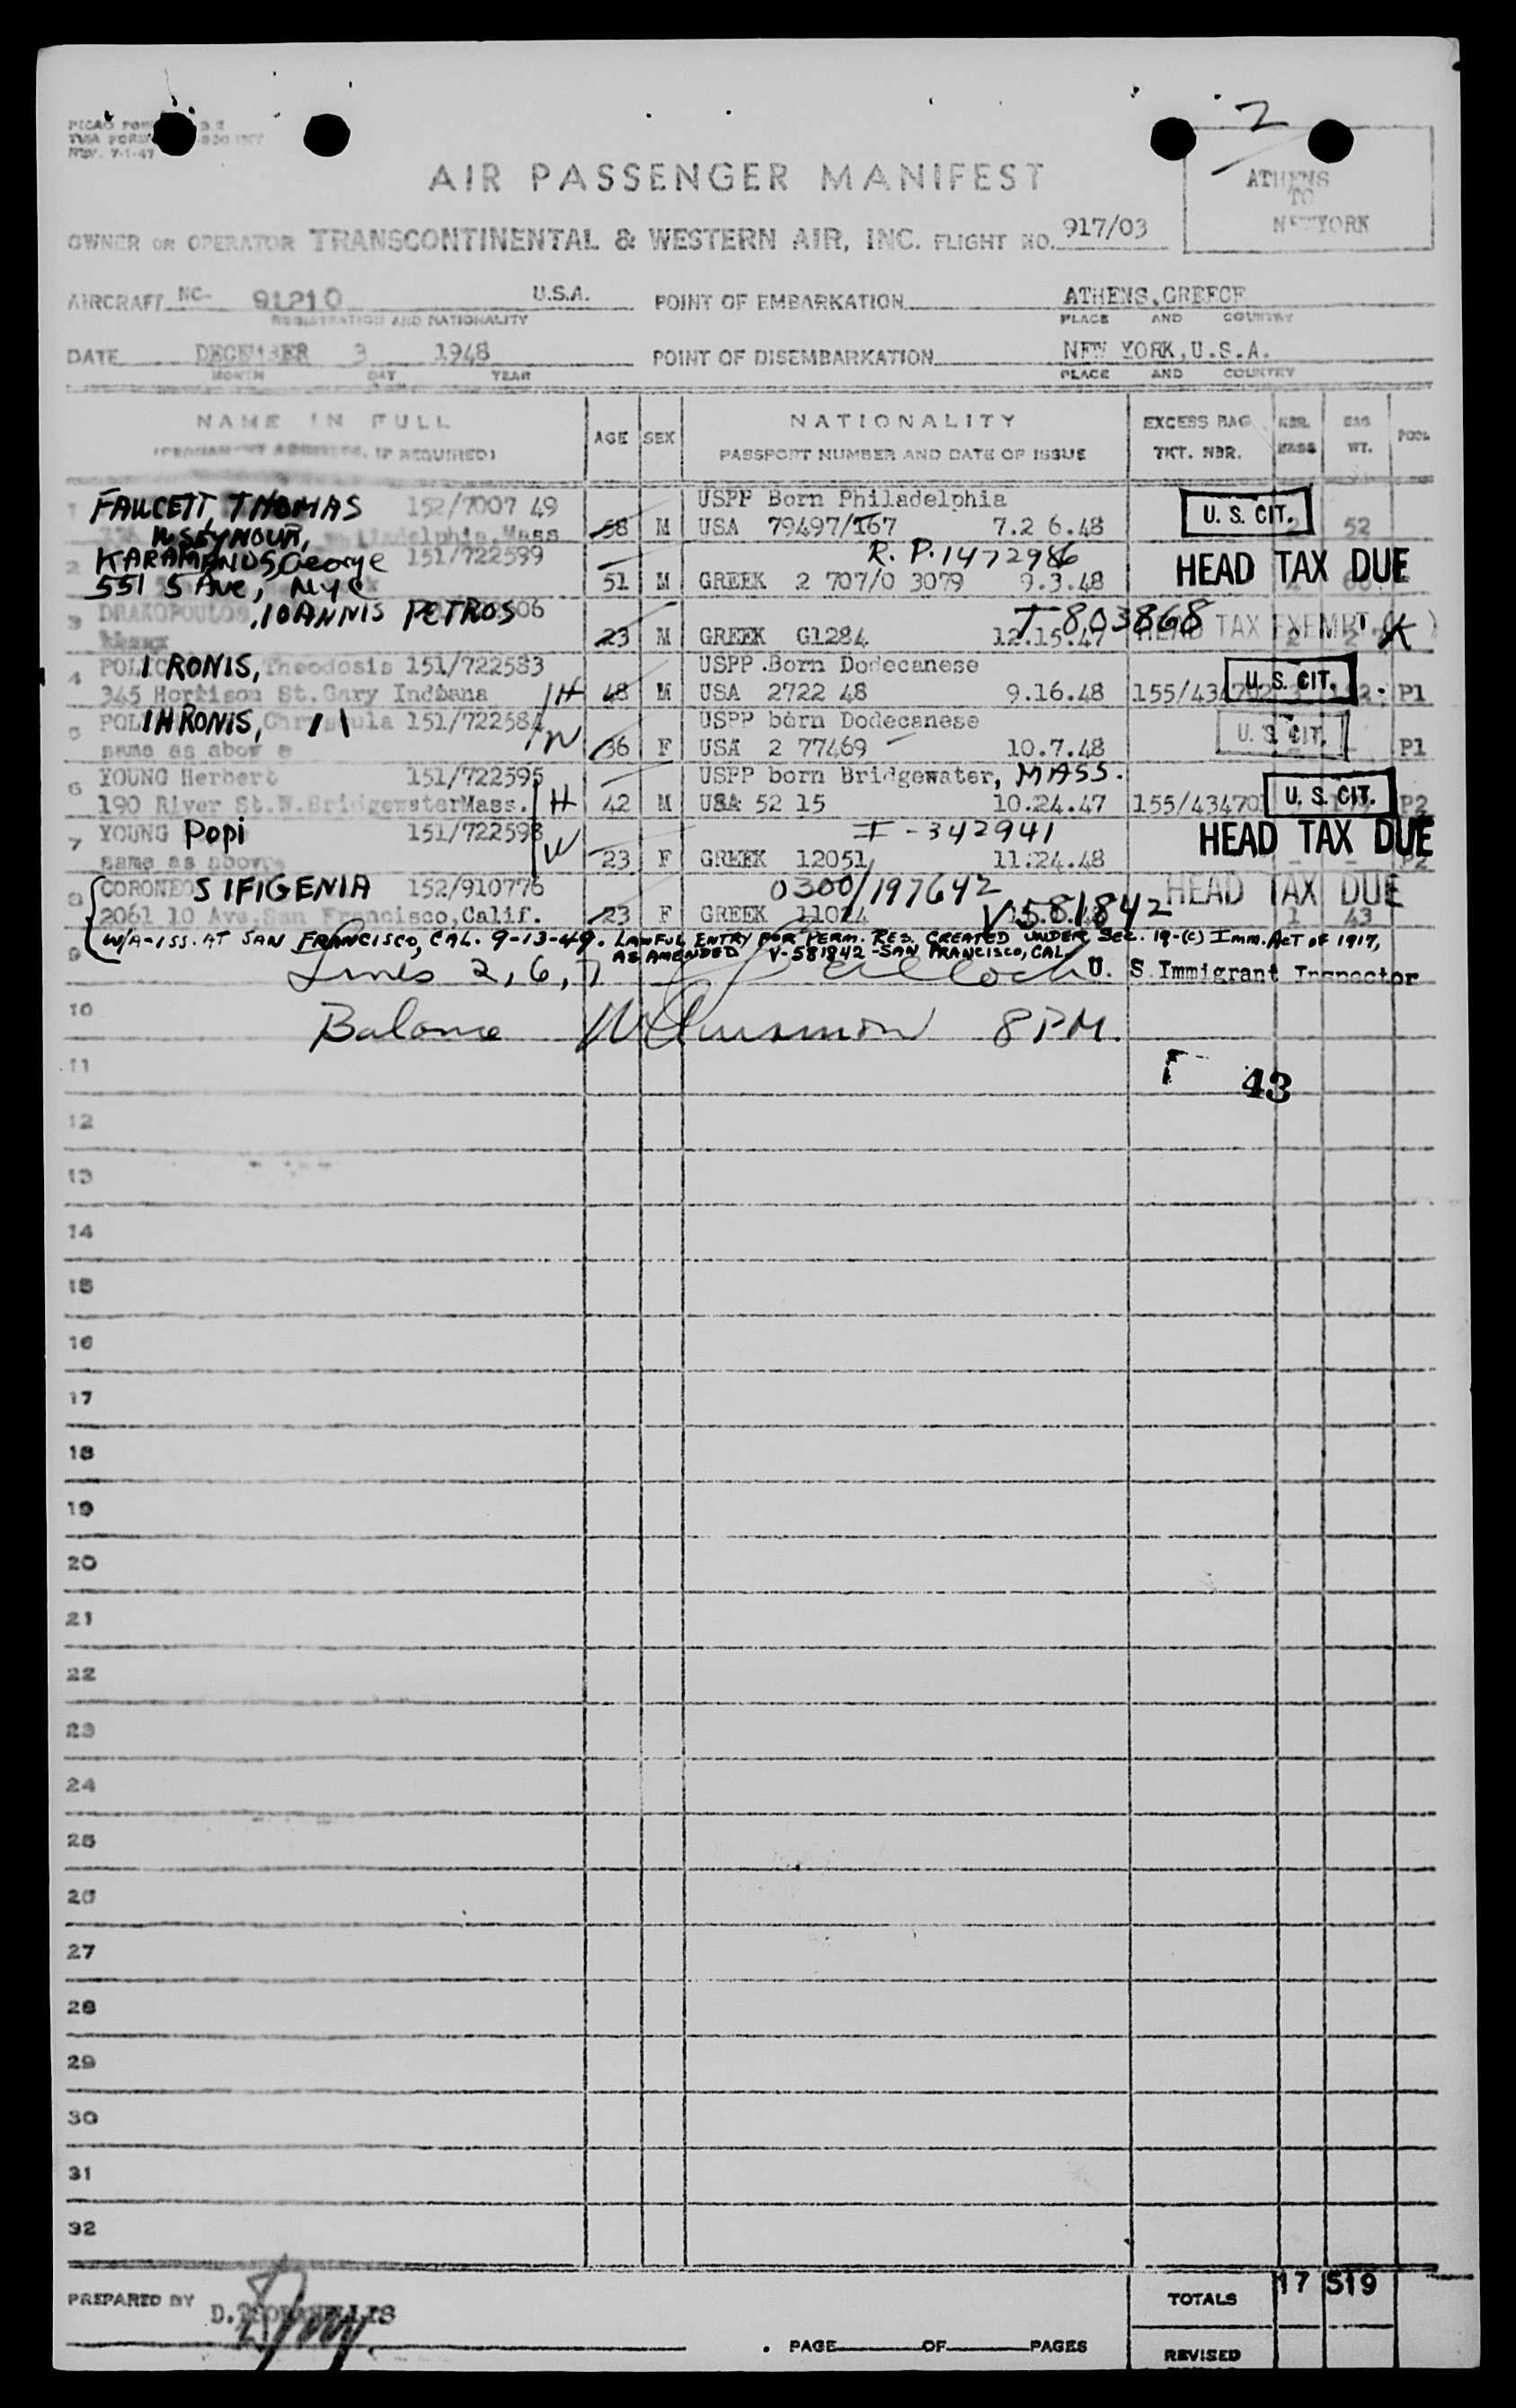 2
REV. 7-1-47
AIR PASSENGER MANIFEST
ATHENS
TO
NEW YORK
OWNER OR OPERATOR TRANSCONTINENTAL & WESTERN AIR, INC. FLIGHT NO. 917/03
AIRCRAFT NC- 91210 U.S.A. POINT OF EMBARKATION ATHENS, GREECE
REGISTRATION AND NATIONALITY PLACE AND COUNTRY
DATE DECEMBER 3 1948 POINT OF DISEMBARKATION NEW YORK, U.S.A.
MONTH DAY YEAR PLACE AND COUNTRY
NAME IN FULL AGE SEX NATIONALITY EXCESS BAG NBR. BAG POOL
(PERMANENT ADDRESS, IF REQUIRED) PASSPORT NUMBER AND DATE OF ISSUE TKT. NBR. WT.
1 FAUCETT, THOMAS 152/7007 49 USPP Born Philadelphia U. S. CIT.
SEYMOUR, 58 M USA 79497/167 7.2 6.48 52
2 KARAMANOS, George 151/722599 R. P. 1472986 HEAD TAX DUE
551 5 Ave, NYC 51 M GREEK 2 707/0 3079 9.3.48
3 DRAKOPOULOS, IOANNIS PETROS 06 T-803868
23 M GREEK G1284 12.15.47 HEAD TAX EXEMPT (K)
4 POLICRONIS, Theodosis 151/722583 USPP Born Dodecanese U. S. CIT.
345 Horrison St. Gary Indbana H 48 M USA 2722 48 9.16.48 P1
5 POLIHRONIS, Chrysoula 151/722584 USPP born Dodecanese U. S. CIT.
same as above W 36 F USA 2 77469 10.7.48 P1
6 YOUNG Herbert 151/722595 USPP born Bridgewater, MASS.
190 River St. W. BridgewsterMass. H 42 M USA 52 15 10.24.47 155/43470 U. S. CIT. P2
7 YOUNG Popi 151/722598 I-342941 HEAD TAX DUE
same as above W 23 F GREEK 12051 11.24.48 P2
8 CORONEOS IFIGENIA 152/910776 0300/197642 HEAD TAX DUE
2061 10 Ave, San Francisco, Calif. 23 F GREEK 11024 V581842 1 43
W/A-ISS. AT SAN FRANCISCO, CAL. 9-13-49. LAWFUL ENTRY FOR PERM. RES. CREATED UNDER SEC. 19-(C) IMM. ACT OF 1917,
AS AMENDED V-581842 -SAN FRANCISCO, CAL.
9 Lines 2, 6, 7 U. S. Immigrant Inspector
10 Balance 8 PM.
11 43
12
13
14
15
16
17
18
19
20
21
22
23
24
25
26
27
28
29
30
31
32
PREPARED BY TOTALS 17 519
PAGE OF PAGES REVISED